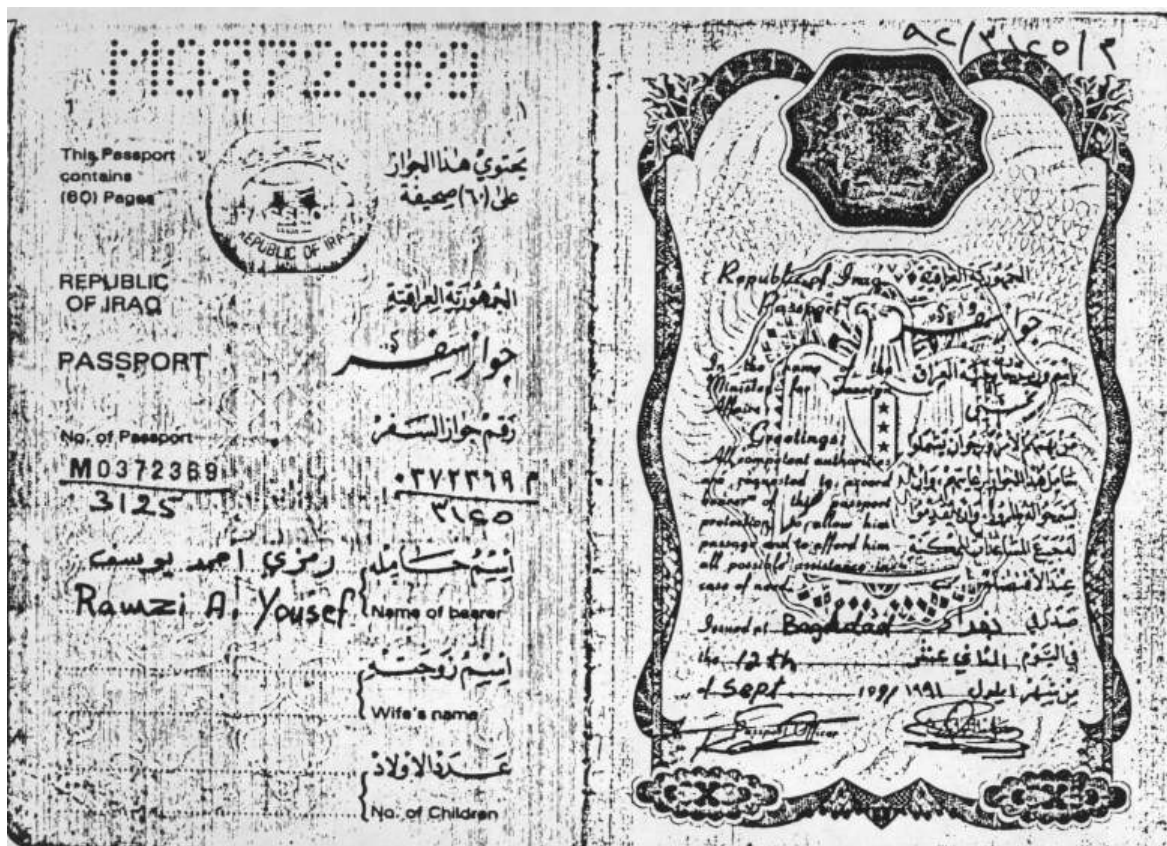 M0372369
1
١
This Passport
contains
(60) Pages
يحتوي هذا الجواز
على (٦٠) صحيفة
REPUBLIC OF IRAQ
REPUBLIC
OF IRAQ
الجمهورية العراقية
PASSPORT
جواز سفر
No. of Passport
رقم جواز السفر
M0372369
٠٣٧٢٣٦٩ م
3125
٣١٢٥
رمزي أحمد يوسف
اسم حامله
Ramzi A. Yousef
Name of bearer
اسم زوجته
Wife's name
عدد الاولاد
No. of Children
٩٢/٣١٢٥/٣
Republic of Iraq
الجمهورية العراقية
Passport
جواز سفر
In the name of the
Minister for Foreign
Affairs
Greetings:
All competent authorities
are requested to accord
bearer of this passport
protection, to allow him
passage and to afford him
all possible assistance in
case of need.
Issued at Baghdad بغداد صدر في
the 12th الثاني عشر في اليوم
of Sept 199 / ١٩٩١ من شهر ايلول
Passport Officer